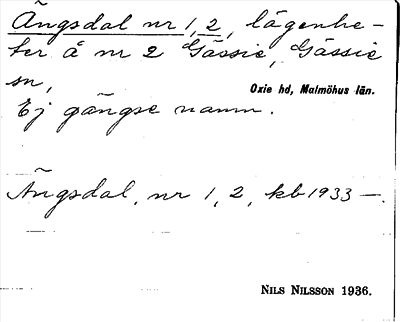 Ängsdal nr 1, 2, lägenhe-
ter å nr 2 Gässie, Gässie
sn,
Oxie hd, Malmöhus län.
Ej gängse namn.
Ängsdal, nr 1, 2, kb 1933 —.
NILS NILSSON 1936.